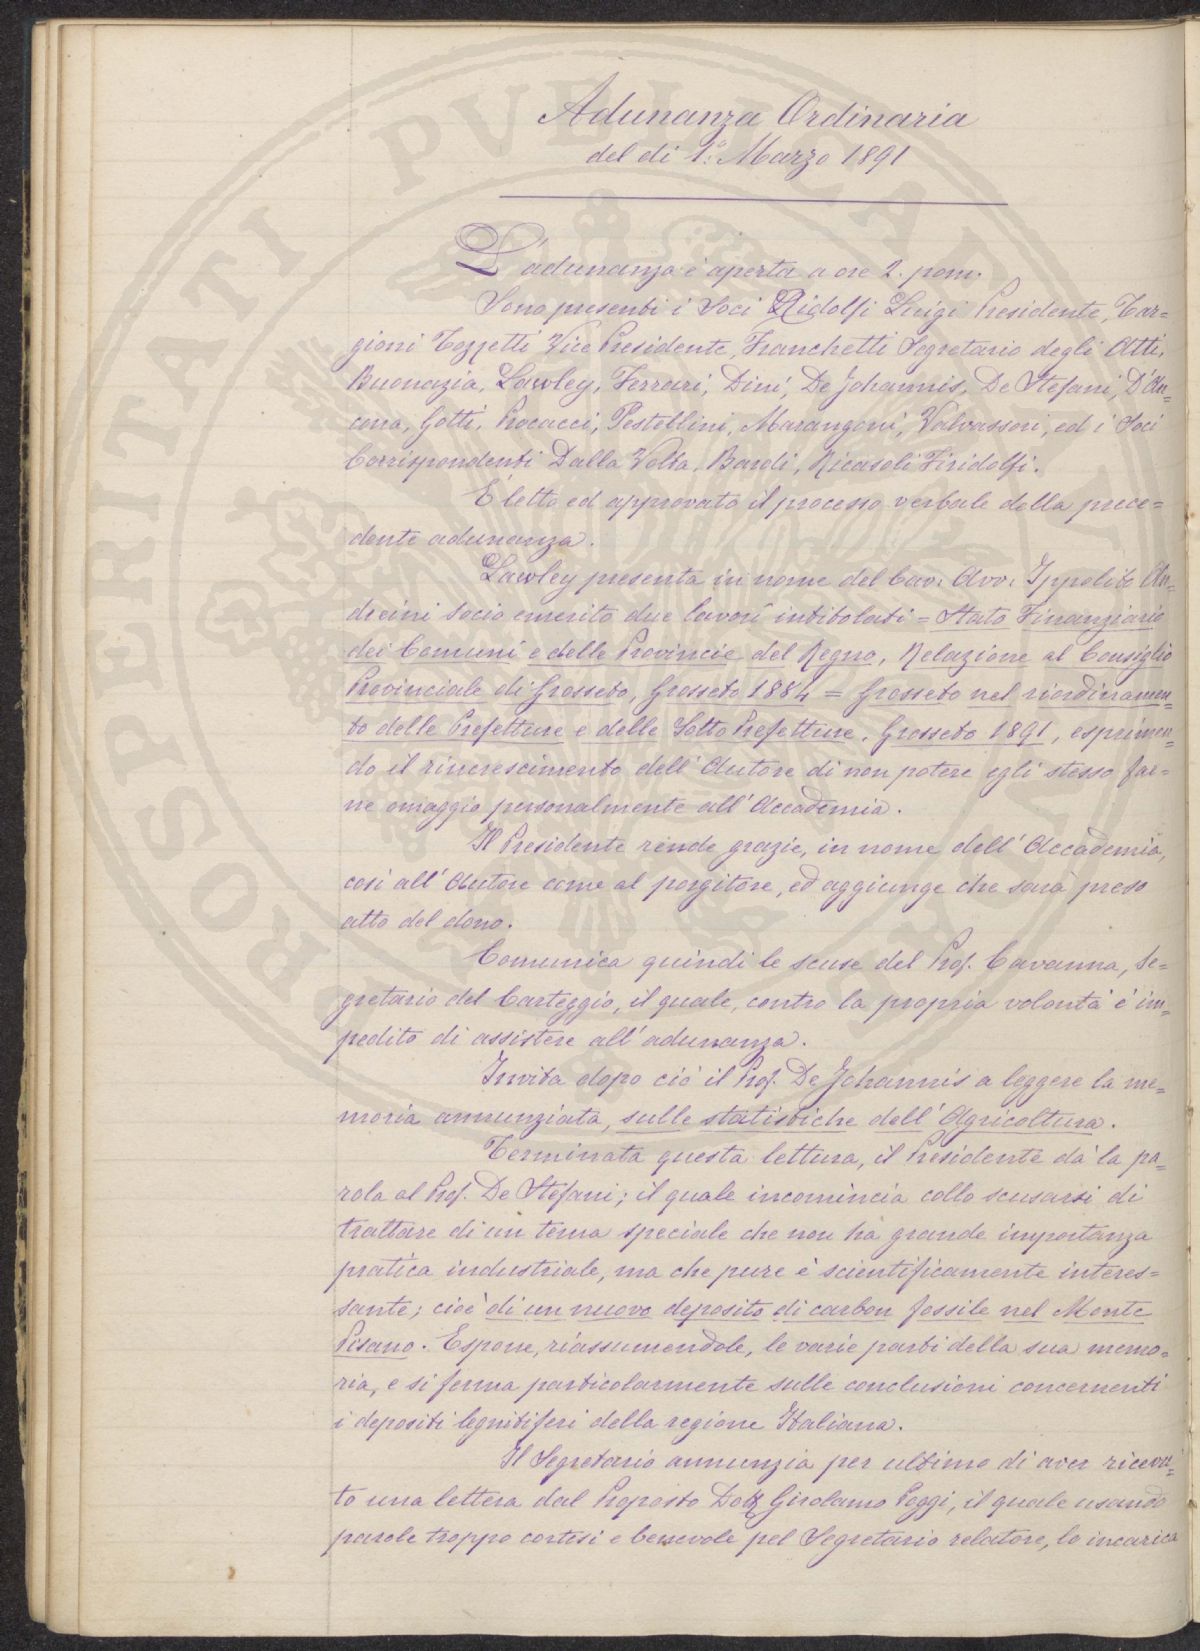 Adunanza Ordinaria
del di 1.° Marzo 1891
L'adunanza è aperta a ore 2. pom.
Sono presenti i Soci Ridolfi Luigi Presidente, Tar=
gioni Tozzetti Vice Presidente, Franchetti Segretario degli Atti,
Buonazia, Lawley, Ferrari, Dini, De Johannis, De Stefani, D'An=
cona, Gotti, Procacci, Pestellini, Marangoni, Valvassori, ed i Soci
Corrispondenti Dalla Volta, Bardi, Ricasoli Firidolfi.
È letto ed approvato il processo verbale della prece=
dente adunanza.
Lawley presenta in nome del Cav. Avv. Ippolito An=
dreini socio emerito due lavori intitolati = Stato Finanziario
dei Comuni e delle Provincie del Regno, Relazione al Consiglio
Provinciale di Grosseto, Grosseto 1884 = Grosseto nel riordinamen=
to delle Prefetture e delle Sotto Prefetture, Grosseto 1891, esprimen=
do il rincrescimento dell'Autore di non potere egli stesso far=
ne omaggio personalmente all'Accademia.
Il Presidente rende grazie, in nome dell'Accademia,
così all'Autore come al porgitore, ed aggiunge che sarà preso
atto del dono.
Comunica quindi le scuse del Prof. Cavanna, Se=
gretario del Carteggio, il quale, contro la propria volontà è im=
pedito di assistere all'adunanza.
Invita dopo ciò il Prof. De Johannis a leggere la me=
moria annunziata, sulle statistiche dell'Agricoltura.
Terminata questa lettura, il Presidente dà la pa=
rola al Prof. De Stefani; il quale incomincia collo scusarsi di
trattare di un tema speciale che non ha grande importanza
pratica industriale, ma che pure è scientificamente interes=
sante; cioè di un nuovo deposito di carbon fossile nel Monte
Pisano. Espone, riassumendole, le varie parti della sua memo=
ria, e si ferma particolarmente sulle conclusioni concernenti
i depositi lignitiferi della regione Italiana.
Il Segretario annunzia per ultimo di aver ricevu=
to una lettera dal Proposto Dott Girolamo Poggi, il quale usando
parole troppo cortesi e benevole pel Segretario relatore, lo incarica
PROSPERITATI PVBLICAE